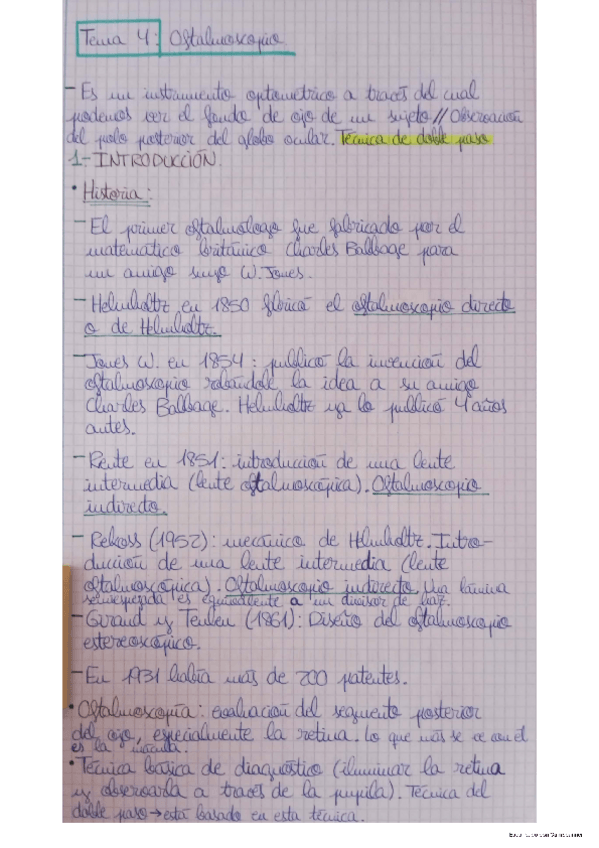 Tema 4: Oftalmoscopio
- Es un instrumento optométrico a través del cual
podemos ver el fondo de ojo de un sujeto // Observación
del polo posterior del globo ocular. Técnica de doble paso
1- INTRODUCCIÓN.
• Historia:
- El primer oftalmólogo fue fabricado por el
matemático británico Charles Babbage para
un amigo suyo W. Jones.
- Helmholtz en 1850 fabricó el oftalmoscopio directo
o de Helmholtz.
- Jones W. en 1854: publicó la invención del
oftalmoscopio robándole la idea a su amigo
Charles Babbage. Helmholtz ya lo publicó 4 años
antes.
- Rente en 1851: introducción de una lente
intermedia (lente oftalmoscópica). Oftalmoscopio
indirecto.
- Rekoss (1952): mecánico de Helmholtz. Intro-
ducción de una lente intermedia (lente
oftalmoscópica). Oftalmoscopio indirecto. Una lámina
semiespejada es equivalente a un divisor de haz.
- Giraud y Teulen (1861): Diseño del oftalmoscopio
estereoscópico.
- En 1931 había más de 200 patentes.
• Oftalmoscopía: evaluación del segmento posterior
del ojo, especialmente la retina. Lo que más se ve con él
es la mácula.
• Técnica básica de diagnóstico (iluminar la retina
y observarla a través de la pupila). Técnica del
doble paso → está basado en esta técnica.